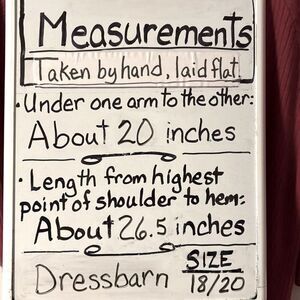 Measurements
Taken by hand, laid flat
• Under one arm to the other:
About 20 inches
• Length from highest
point of shoulder to hem:
About 26.5 inches
Dressbarn SIZE
18/20